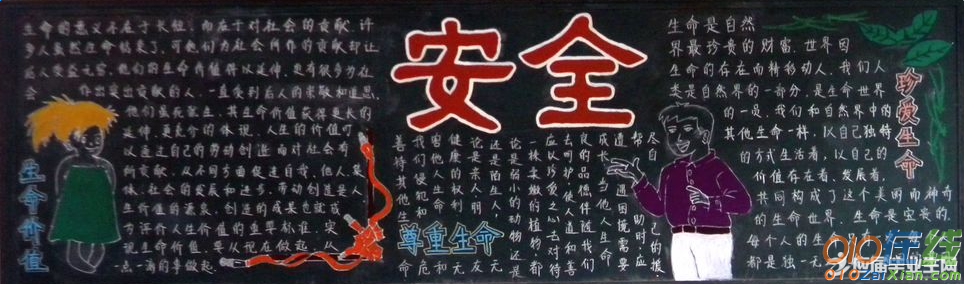 生命的意义不在于长短，而在于对社会的贡献。许
多人虽然生命结束了，可他们为社会所作的贡献却让
后人受益无穷，他们的生命价值得以延伸。更有很多为社
会 作出突出贡献的人，一直受到后人的崇敬和追思，
他们虽死犹生，其生命价值获得更长的
延伸，更充分的体现。人生的价值可
以通过自己的劳动创造而对社会有
所贡献，从不同方面促进自我、他人、集
体、社会的发展和进步。劳动创造是人
生价值的源泉，创造的成果也就成
为评价人生价值的重要标准。实
现生命价值，要从现在做起，从
一点一滴的事做起。
生命价值
安全
尊重生命
尽自己的援
帮助时，应
道困境需要
成长。当他人生命
良的品德伴随我们
去呵护，使人道和善
应以珍爱之心去对待
一株柔嫩的植物，都
论是弱小的动物还是
还是陌生人，无
论是亲人朋友，无
健康的权利。无
害他人生命和
我们侵犯和危
善待其他生命
生命是自然
界最珍贵的财富。世界因
生命的存在而精彩动人。我们人
类是自然界的一部分，是生命世界
的一员。我们和自然界中的
其他生命一样，以自己独特
的方式生活着，以自己的
价值存在着、发展着，
共同构成了这个美丽而神奇
的生命世界。生命是宝贵的，
每个人的生
都是独一无
珍爱生命
910在线
910ZaiXian.com